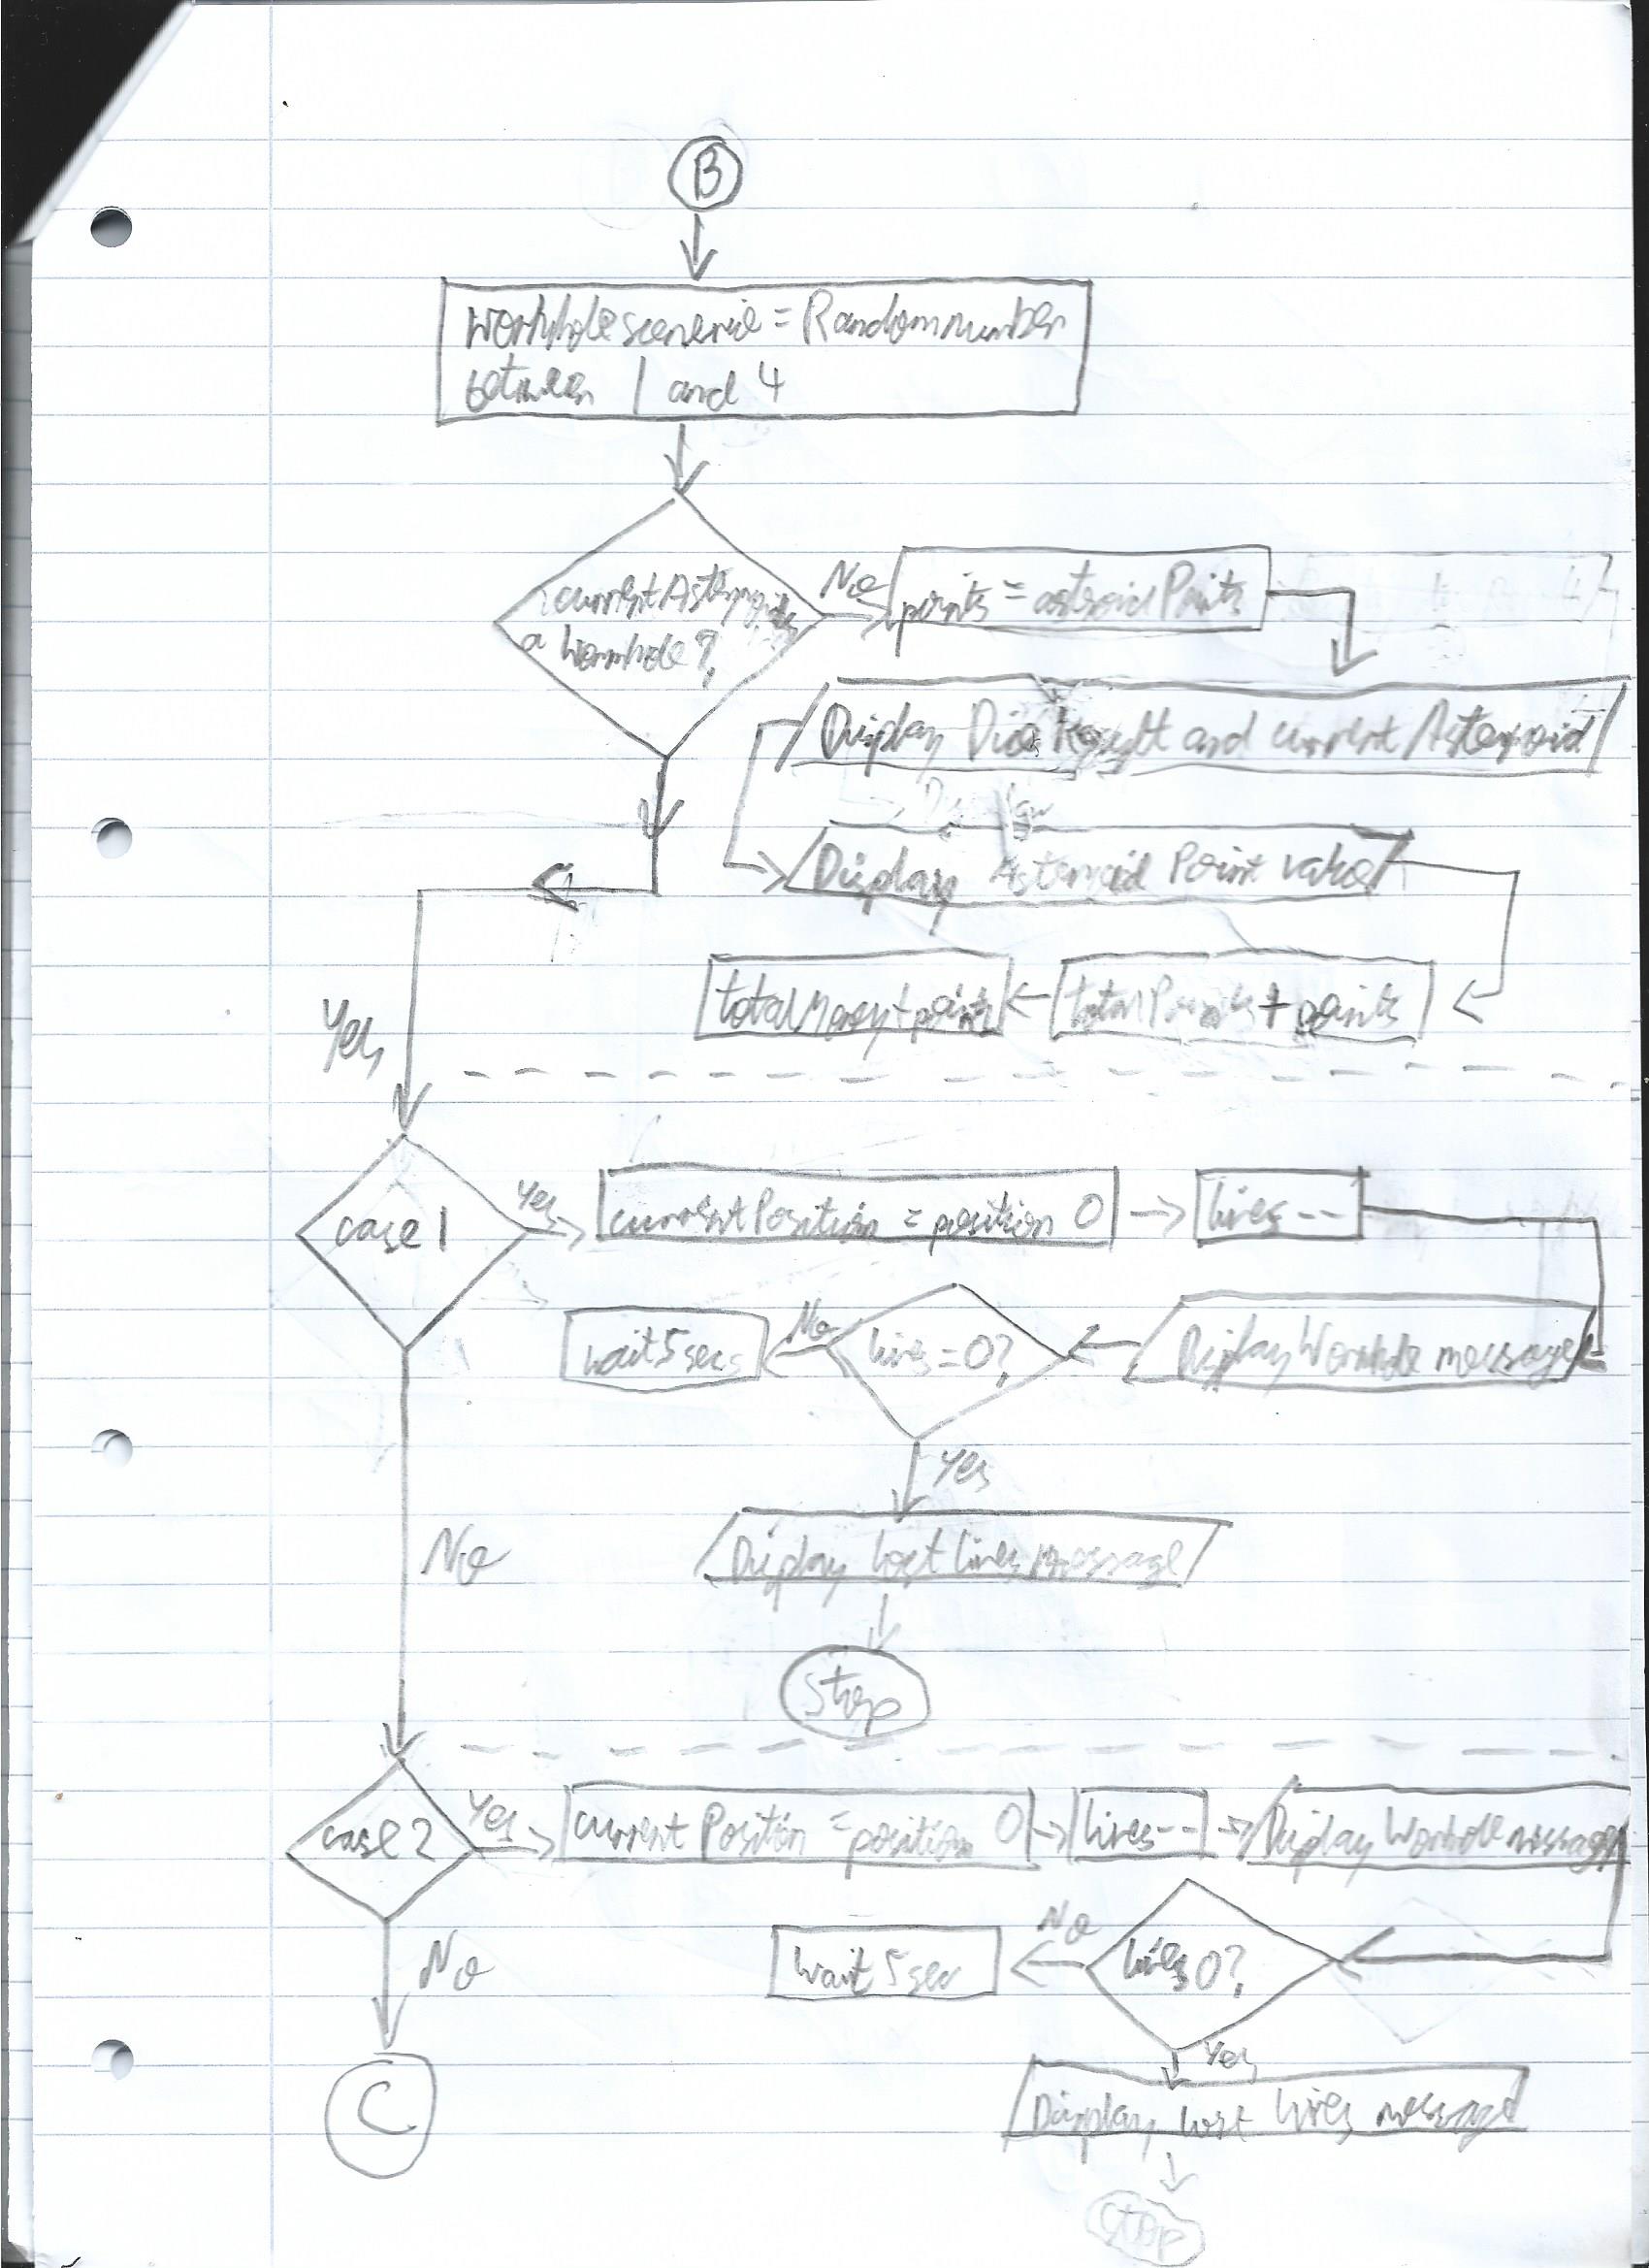 B
wormholescenerio = Random number
between 1 and 4
currentAsteroid
a Wormhole?
No
points = astroid Points
Display Dice Result and current Asteroid
Display Asteroid Point value
totalMoney + points
totalPoints + points
Yes
case 1
Yes
currentPosition = position 0
lives--
wait 5 secs
No
lives = 0?
Display Wormhole message
Yes
No
Display lost lives message
Stop
case 2
Yes
current Position = position 0
lives--
Display Wormhole message
No
wait 5 sec
No
lives 0?
Yes
C
Display lost lives message
Stop